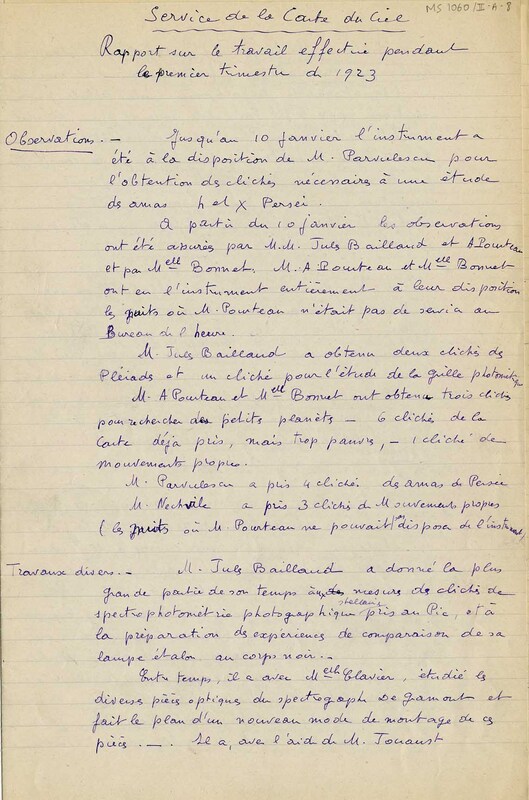 MS 1060/II-A-8
Service de la Carte du Ciel
Rapport sur le travail effectué pendant
le premier trimestre de 1923
Observations. — Jusqu'au 10 janvier l'instrument a
été à la disposition de M. Parvulescu pour
l'obtention des clichés nécessaires à une étude
des amas h et χ Persei.
A partir du 10 janvier les observations
ont été assurées par M.M. Jules Baillaud et A Pourteau
et par Melle Bonnet, M. A Pourteau et Melle Bonnet
ont eu l'instrument entièrement à leur disposition
les nuits où M. Pourteau n'était pas de service au
Bureau de l'heure.
M. Jules Baillaud a obtenu deux clichés des
Pléiades et un cliché pour l'étude de la grille photométrique
M. A Pourteau et Melle Bonnet ont obtenu trois clichés
pour rechercher des petits planètes — 6 clichés de la
Carte déjà pris, mais trop pauvres, — 1 cliché de
mouvements propres.
M. Parvulescu a pris 4 clichés des amas de Persée
M. Nechvile a pris 3 clichés de Mouvements propres
(les nuits où M. Pourteau ne pouvait disposer de l'instrument)
Travaux divers. — M. Jules Baillaud a donné la plus
grande partie de son temps à mesure des clichés de
spectrophotométrie photographique stellaire pris au Pic, et à
la préparation des expériences de comparaison de sa
lampe étalon au corps noir. —
Entre temps, il a avec Melle Clavier, étudié les
diverses pièces optiques du spectrographe de Gramont et
fait le plan d'un nouveau mode de montage de ces
pièces. — . Il a, avec l'aide de M. Jouaust